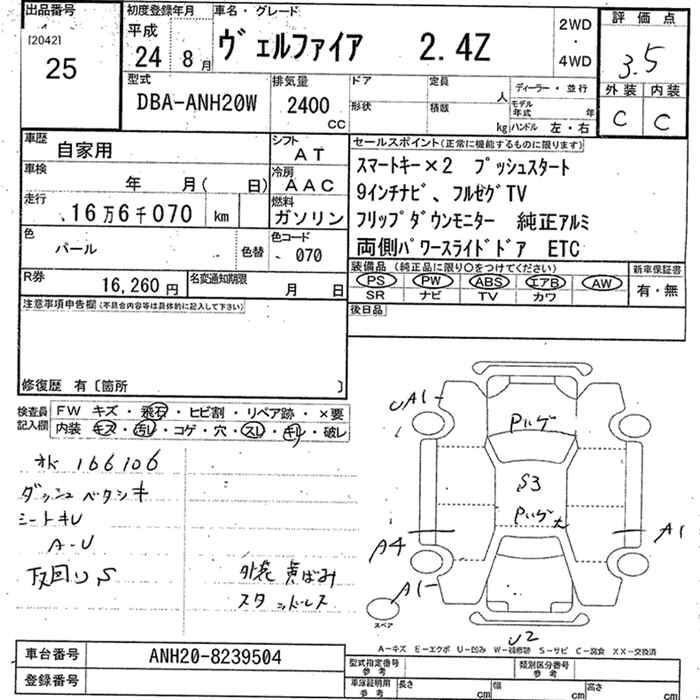 出品番号 初度登録年月 車名・グレード 評価点
[2042] 平成 24 年 8 月 ヴェルファイア 2.4Z 2WD・4WD 3.5
25
型式 排気量 ドア 定員 人 ディーラー・並行 外装 内装
DBA-ANH20W 2400 CC 形状 積載 kg モデル年式 年 ハンドル 左・右 C C
車歴 自家用 シフト AT セールスポイント(正常に機能するものに限ります)
車検 年 月( 日) 冷房 AAC スマートキー×2 プッシュスタート
走行 16万6千070 km 燃料 ガソリン 9インチナビ、フルゼグTV
フリップダウンモニター 純正アルミ
色 パール 色替 色コード 070 両側パワースライドドア ETC
R券 16,260円 名変通知期限 月 日 装備品(純正品に限り○をつけてください) 新車保証書
PS PW ABS エアB AW 有・無
SR ナビ TV カワ
注意事項申告欄(不具合内容等は具体的に記入して下さい) 後日品
修復歴 有〔箇所 〕
検査員記入欄 FW キズ・飛石・ヒビ割・リペア跡・×要
内装 キズ・汚レ・コゲ・穴・スレ・キレ・破レ
オド 166106
ダッシュ ベタシキ
シートキU
A-U
下回りS
外装 黄ばみ
スタッドレス
UA1
Pルーゲ
S3
Pルーゲ大
A4 A1
A1
スペア
U2
A-キズ E-エクボ U-凹み W-補修跡 S-サビ C-腐食 XX-交換済
車台番号 ANH20-8239504 型式指定番号 参考 類別区分番号 参考
登録番号 車庫証明用 参考 長さ cm 幅 cm 高さ cm